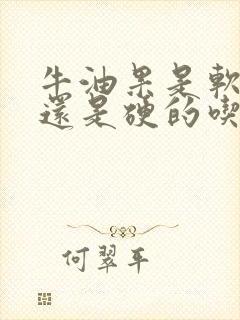 牛油果是軟
還是硬的喫
何翠平